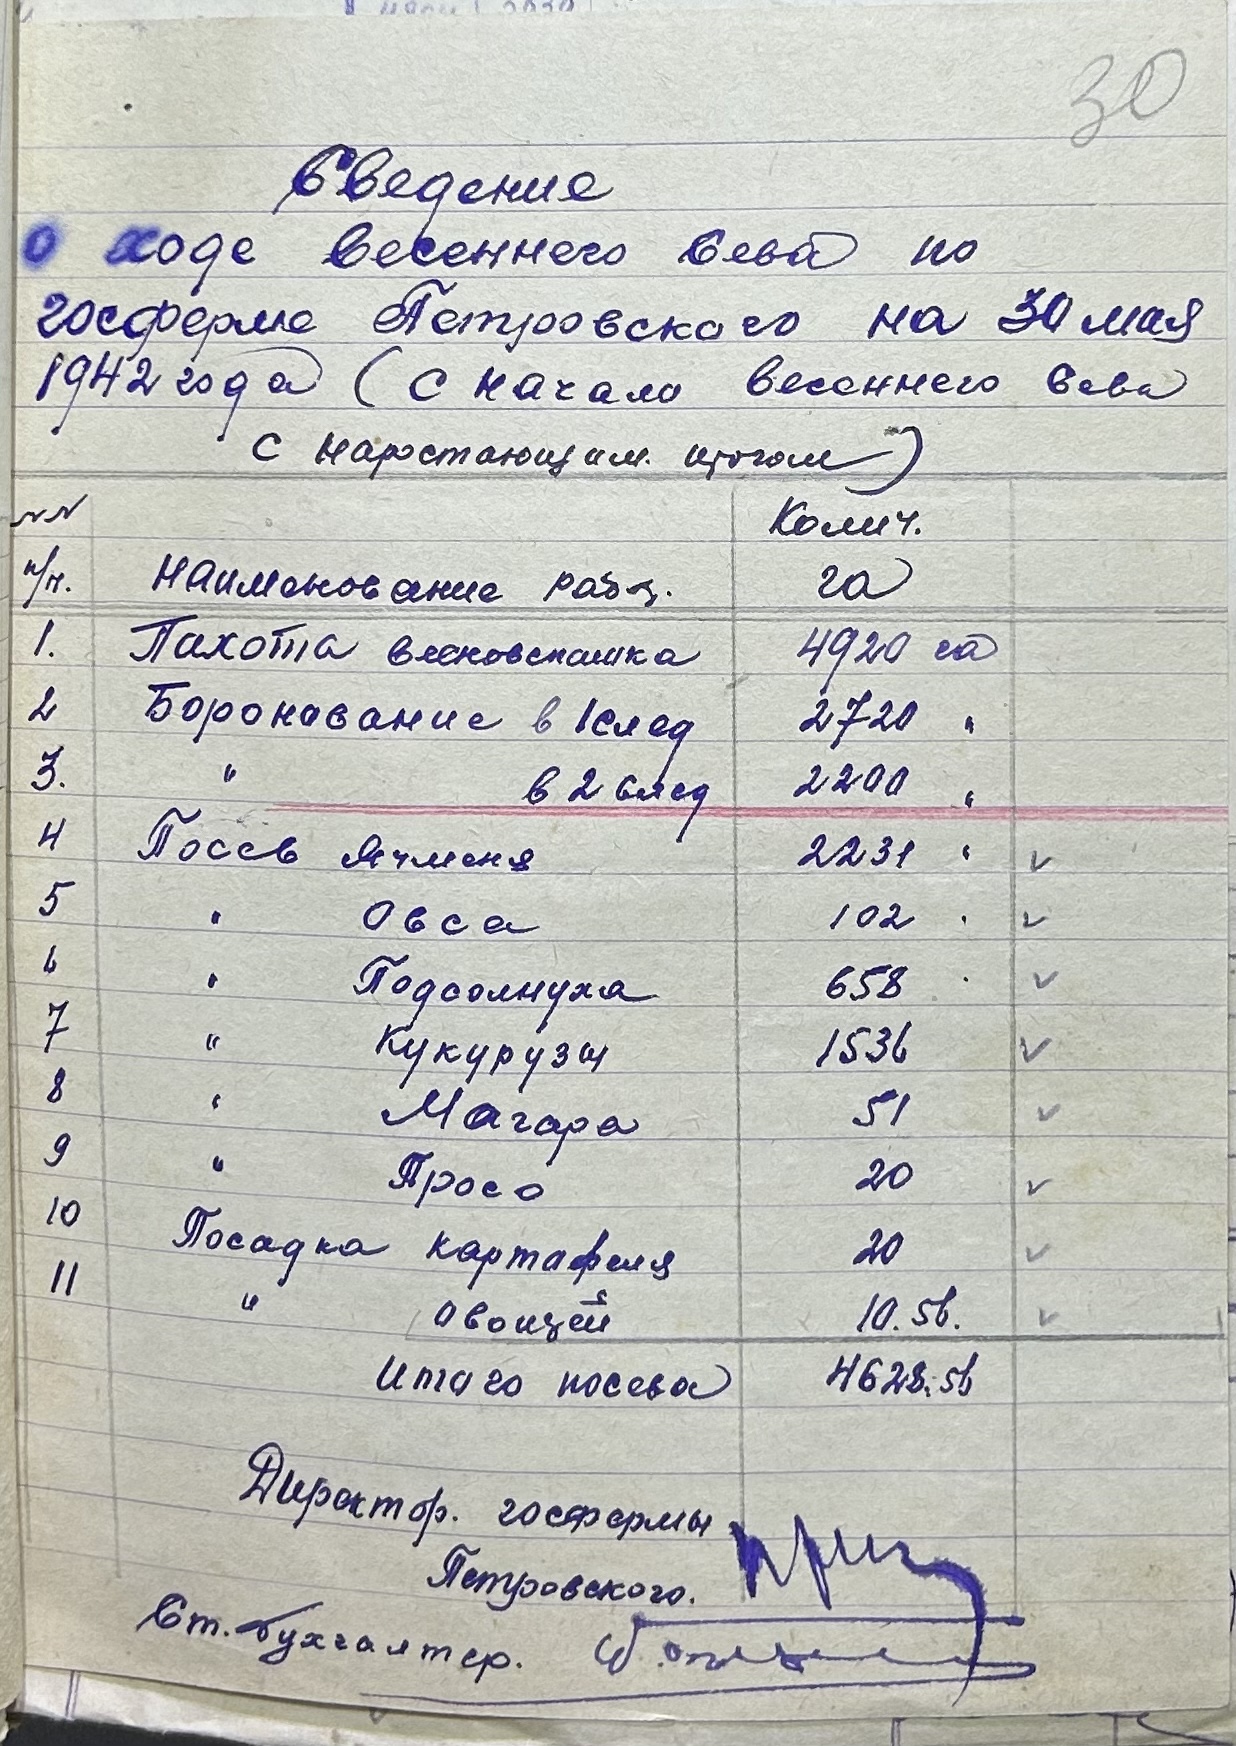 30
Сведение
о ходе весеннего сева по
госферме Петровского на 30 мая
1942 года (с начала весеннего сева
с нарстающим. итогом)
NN п/п. Наименование работ. Колич. га
1. Пахота весновспашка 4920 га
2 Боронование в 1 след 2720 "
3. " в 2 след 2200 "
4 Посев Ячменя 2231 " ✓
5 " Овса 102 " ✓
6 " Подсолнуха 658 " ✓
7 " Кукурузы 1536 ✓
8 " Магара 51 ✓
9 " Просо 20 ✓
10 Посадка картафеля 20 ✓
11 " Овощей 10.56. ✓
Итаго посева 4628.56
Директор. госфермы
Петровского.
Ст. бухгалтер.